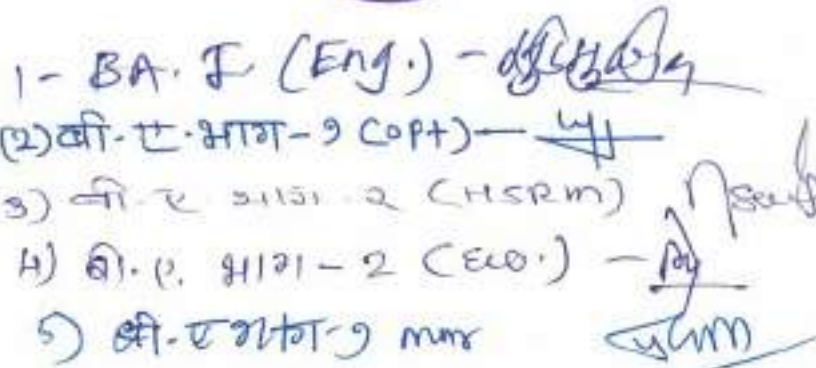 1- BA. I. (Eng.) -
(2) बी. ए. भाग - १ (opt) -
3) बी. ए. भाग. २ (HSRM)
4) बी. ए. भाग - 2 (Eco.) -
5) बी. ए भाग - १ mar